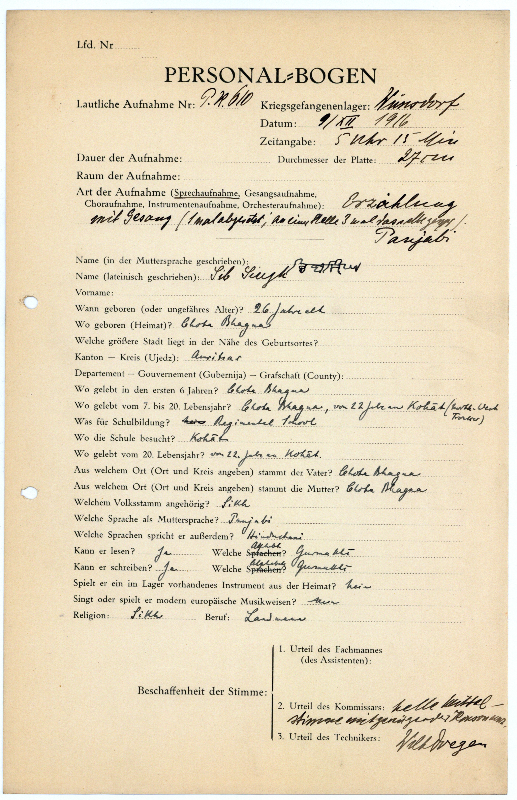 Lfd. Nr.
PERSONAL-BOGEN
Lautliche Aufnahme Nr: P.K. 610 Kriegsgefangenenlager: Wünsdorf
Datum: 9/XII 1916
Zeitangabe: 5 Uhr 15 Min
Dauer der Aufnahme: Durchmesser der Platte: 27 cm
Raum der Aufnahme:
Art der Aufnahme (Sprechaufnahme, Gesangsaufnahme,
Choraufnahme, Instrumentenaufnahme, Orchesteraufnahme): Erzählung
mit Gesang (1 mal abgesetzt, an einer Stelle 3 mal dasselbe
Panjabi
Name (in der Muttersprache geschrieben):
Name (lateinisch geschrieben): Sib Singh
Vorname:
Wann geboren (oder ungefähres Alter)? 26 Jahre alt
Wo geboren (Heimat)? Chota Bhagna
Welche größere Stadt liegt in der Nähe des Geburtsortes?
Kanton – Kreis (Ujedz): Amritsar
Departement – Gouvernement (Gubernija) – Grafschaft (County):
Wo gelebt in den ersten 6 Jahren? Chota Bhagna
Wo gelebt vom 7. bis 20. Lebensjahr? Chota Bhagna, von 22 Jahr an Kohat (North-West
Frontier)
Was für Schulbildung? Regimental School
Wo die Schule besucht? Kohat
Wo gelebt vom 20. Lebensjahr? von 22. Jahr an Kohat.
Aus welchem Ort (Ort und Kreis angeben) stammt der Vater? Chota Bhagna
Aus welchem Ort (Ort und Kreis angeben) stammt die Mutter? Chota Bhagna
Welchem Volksstamm angehörig? Sikh
Welche Sprache als Muttersprache? Panjabi
Welche Sprachen spricht er außerdem? Hindustani
Kann er lesen? Ja Welche Sprachen? Gurmukhi
Kann er schreiben? Ja Welche Sprachen? Gurmukhi
Spielt er ein im Lager vorhandenes Instrument aus der Heimat? nein
Singt oder spielt er modern europäische Musikweisen?
Religion: Sikh Beruf: Landmann
1. Urteil des Fachmannes
(des Assistenten):
Beschaffenheit der Stimme:
2. Urteil des Kommissars: helle Mittel-
stimme mit genügender Konsonanz.
3. Urteil des Technikers: Wilh. Doegen